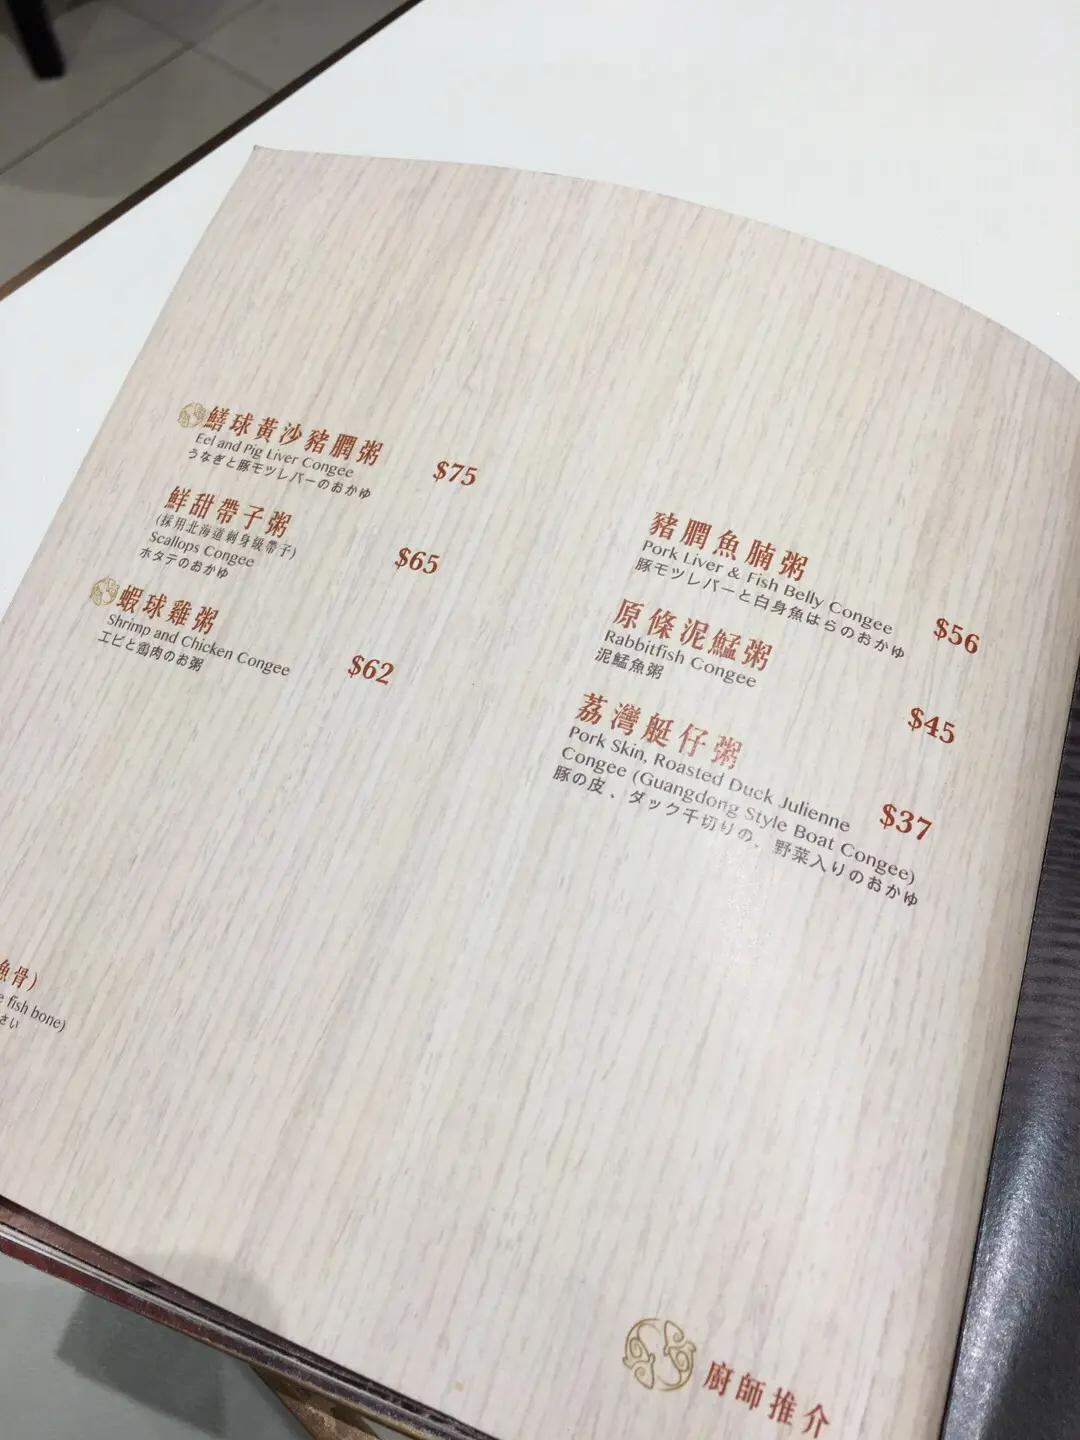 鱔球黃沙豬膶粥
Eel and Pig Liver Congee
うなぎと豚モツレバーのおかゆ
$75
鮮甜帶子粥
(採用北海道刺身級帶子)
Scallops Congee
ホタテのおかゆ
$65
蝦球雞粥
Shrimp and Chicken Congee
エビと鶏肉のお粥
$62
豬膶魚腩粥
Pork Liver & Fish Belly Congee
豚モツレバーと白身魚はらのおかゆ
$56
原條泥鯭粥
Rabbitfish Congee
泥鯭魚粥
$45
荔灣艇仔粥
Pork Skin, Roasted Duck Julienne
Congee (Guangdong Style Boat Congee)
豚の皮、ダック千切りの、野菜入りのおかゆ
$37
魚骨)
fish bone)
さい
廚師推介